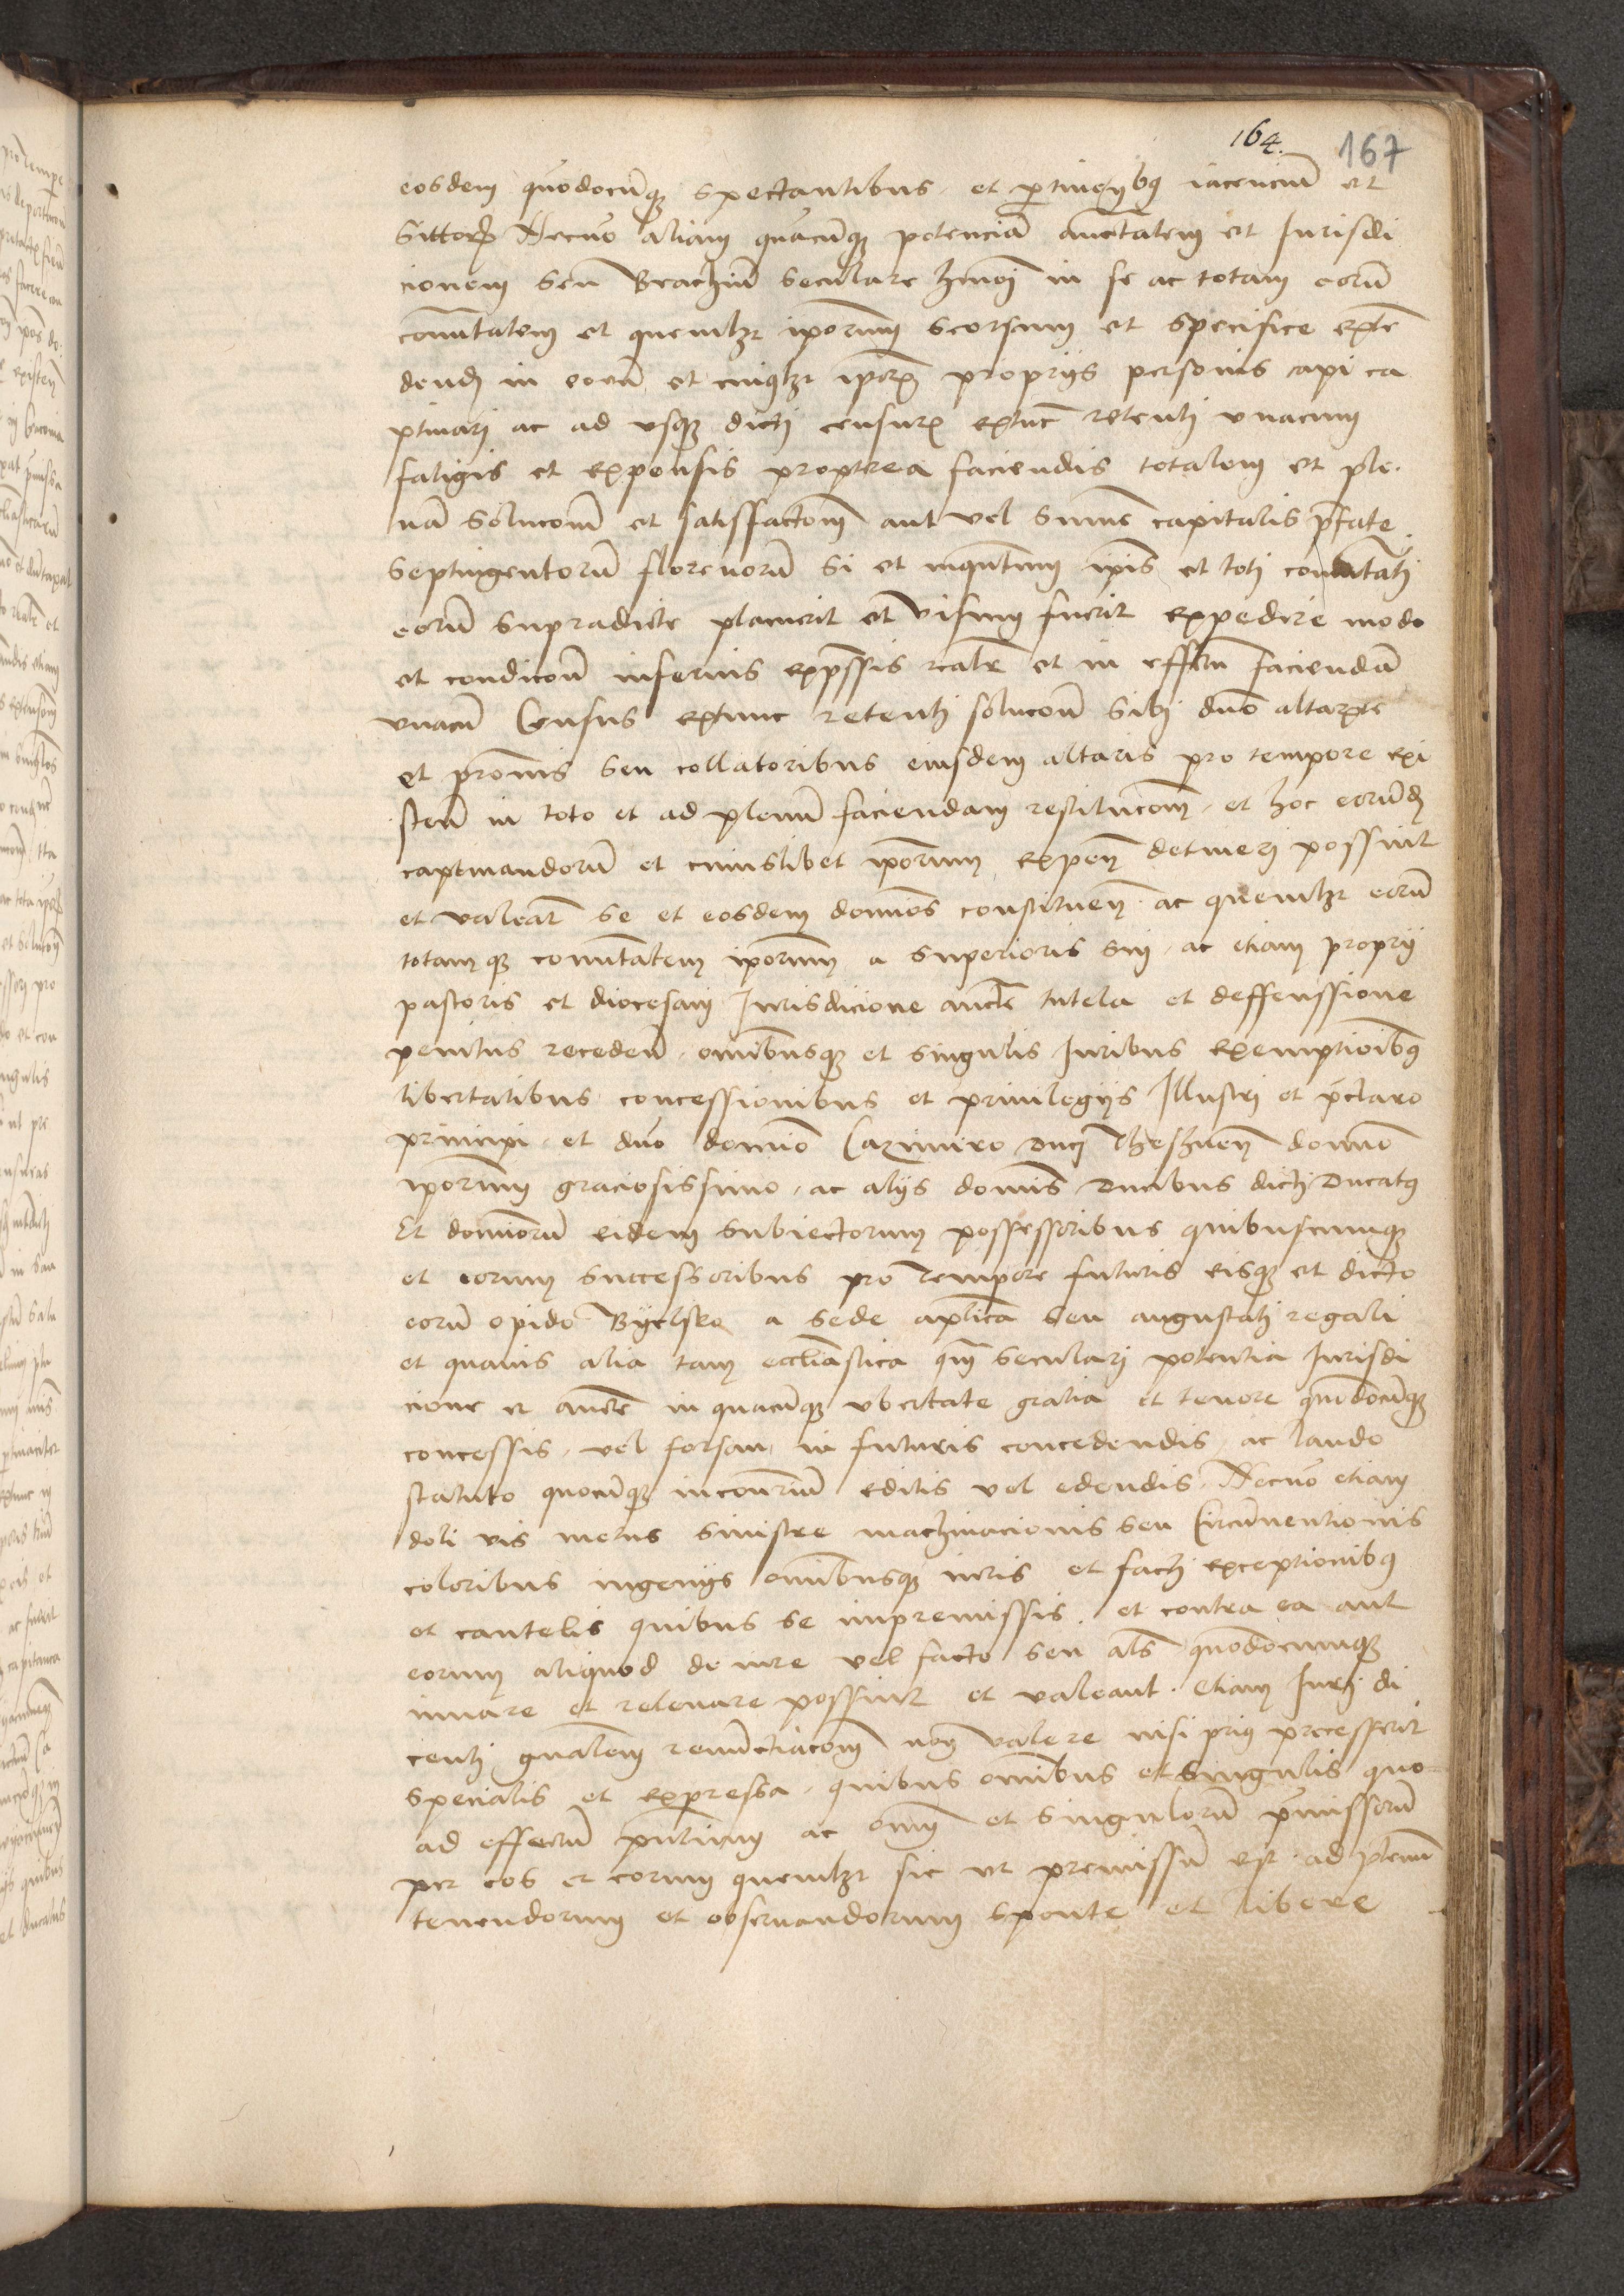 164. 167
eosdem quodocunq; spectantibus et ptinentibus iacencium et
Sittorum Necno aliam quacunq; potenciam auctatem et Iurisdi
cionem seu Brachium seculare hmoi in se ac totam eorum
comitatem et quemlzt iporum seorsum et specifice exten
dendi in eorum et cuiuslzt iporum proprijs personis capi ca
ptiuari ac ad vsq; dicti census extunc retenti vnacum
fatigis et expensis propterea faciendis totalem et ple
nam solucom et satisfactom aut vel summe capitalis pfate
septingentorum florenorum si et inquantum ipis et toti comitati
eorum supradicte placuerit et visum fuerit expedire modo
et condicom inferius expssis realr et in effectu facienda
vnacum Census extunc retenti solucom sibi dno altariste
et pronis seu collatoribus eiusdem altaris pro tempore exi
sten in toto et ad plenum faciendam restitucom et hoc eorund
captiuandorum et cuiuslibet iporum expen detineri possint
et valeant se et eosdem dominos constituen ac quemlzt eorum
totamq; comitatem iporum a superioris sui ac etiam proprij
pastoris et diocesani Iurisdicione aucte tutela et deffenssione
penitus receden omnibusq; et singulis Iuribus exemptioibus
libertatibus concessionibus et priuilegijs Illustri et pclaro
principi et dno domino Cazimiro Duci Theshnen domino
iporum graciosissimo ac alijs dominis Ducibus dicti Ducatus
Et dominorum eidem subiectorum possessoribus quibuscumq;
et eorum successoribus pro tempore futuris eisq; et dicto
eorum opido Byelsko a sede aplica seu augustali regali
et quauis alia tam eccliastica qm seculari potentia Iurisdi
cione et aucte in quacunq; vbertate gratia et tenore quomodocunq;
concessis vel forsan in futuris concedendis ac laudo
statuto quocunq; incontrium editis vel edendis Necno etiam
doli vis metus sinistre machinacionis seu Circumuentionis
coloribus ingenijs omnibusq; iuris et facti exceptionibus
et cautelis quibus se inpremissis et contra ea aut
eorum aliquod de iure vel facto seu als quomodocumq;
iuuare et releuare possint et valeant etiam Iuri di
centi gnalem renunctiacom non valere nisi prius precesserit
specialis et expressa quibus omnibus et singulis quo
ad effectum pntium ac omnium et singulorum pmissorum
per eos et eorum quemlzt sic vt premissum est ad plenum
tenendorum et obseruandorum sponte et libere